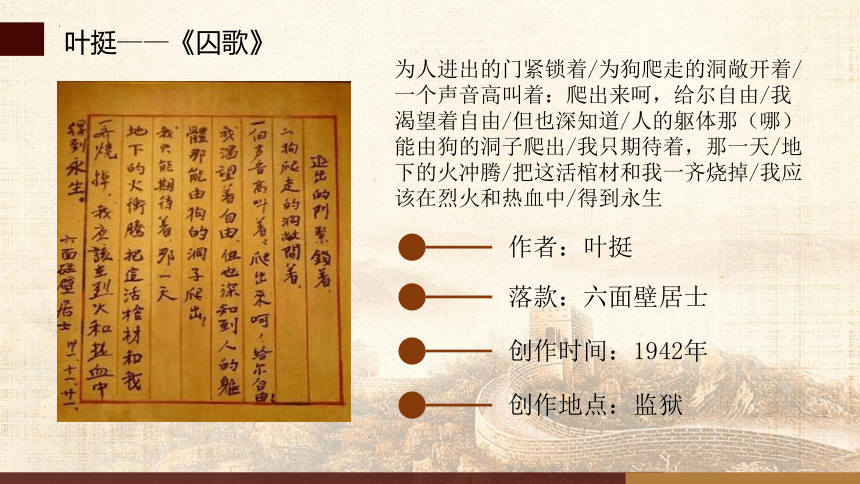 叶挺——《囚歌》
進出的門緊鎖着、
〃狗爬走的洞敞開着、
一個声音高叫着：爬出来呵！给尔自由！
我渴望着自由、但也深知到人的軀
體那能由狗的洞子爬出！
我只能期待着、那一天
地下的火衝騰 把這活棺材和我
一齐燒掉、我应該在烈火和热血中
得到永生。
六面碰壁居士 卅一、十一、廿一、
为人进出的门紧锁着/为狗爬走的洞敞开着/
一个声音高叫着：爬出来呵，给尔自由/我
渴望着自由/但也深知道/人的躯体那（哪）
能由狗的洞子爬出/我只期待着，那一天/地
下的火冲腾/把这活棺材和我一齐烧掉/我应
该在烈火和热血中/得到永生
作者：叶挺
落款：六面壁居士
创作时间：1942年
创作地点：监狱